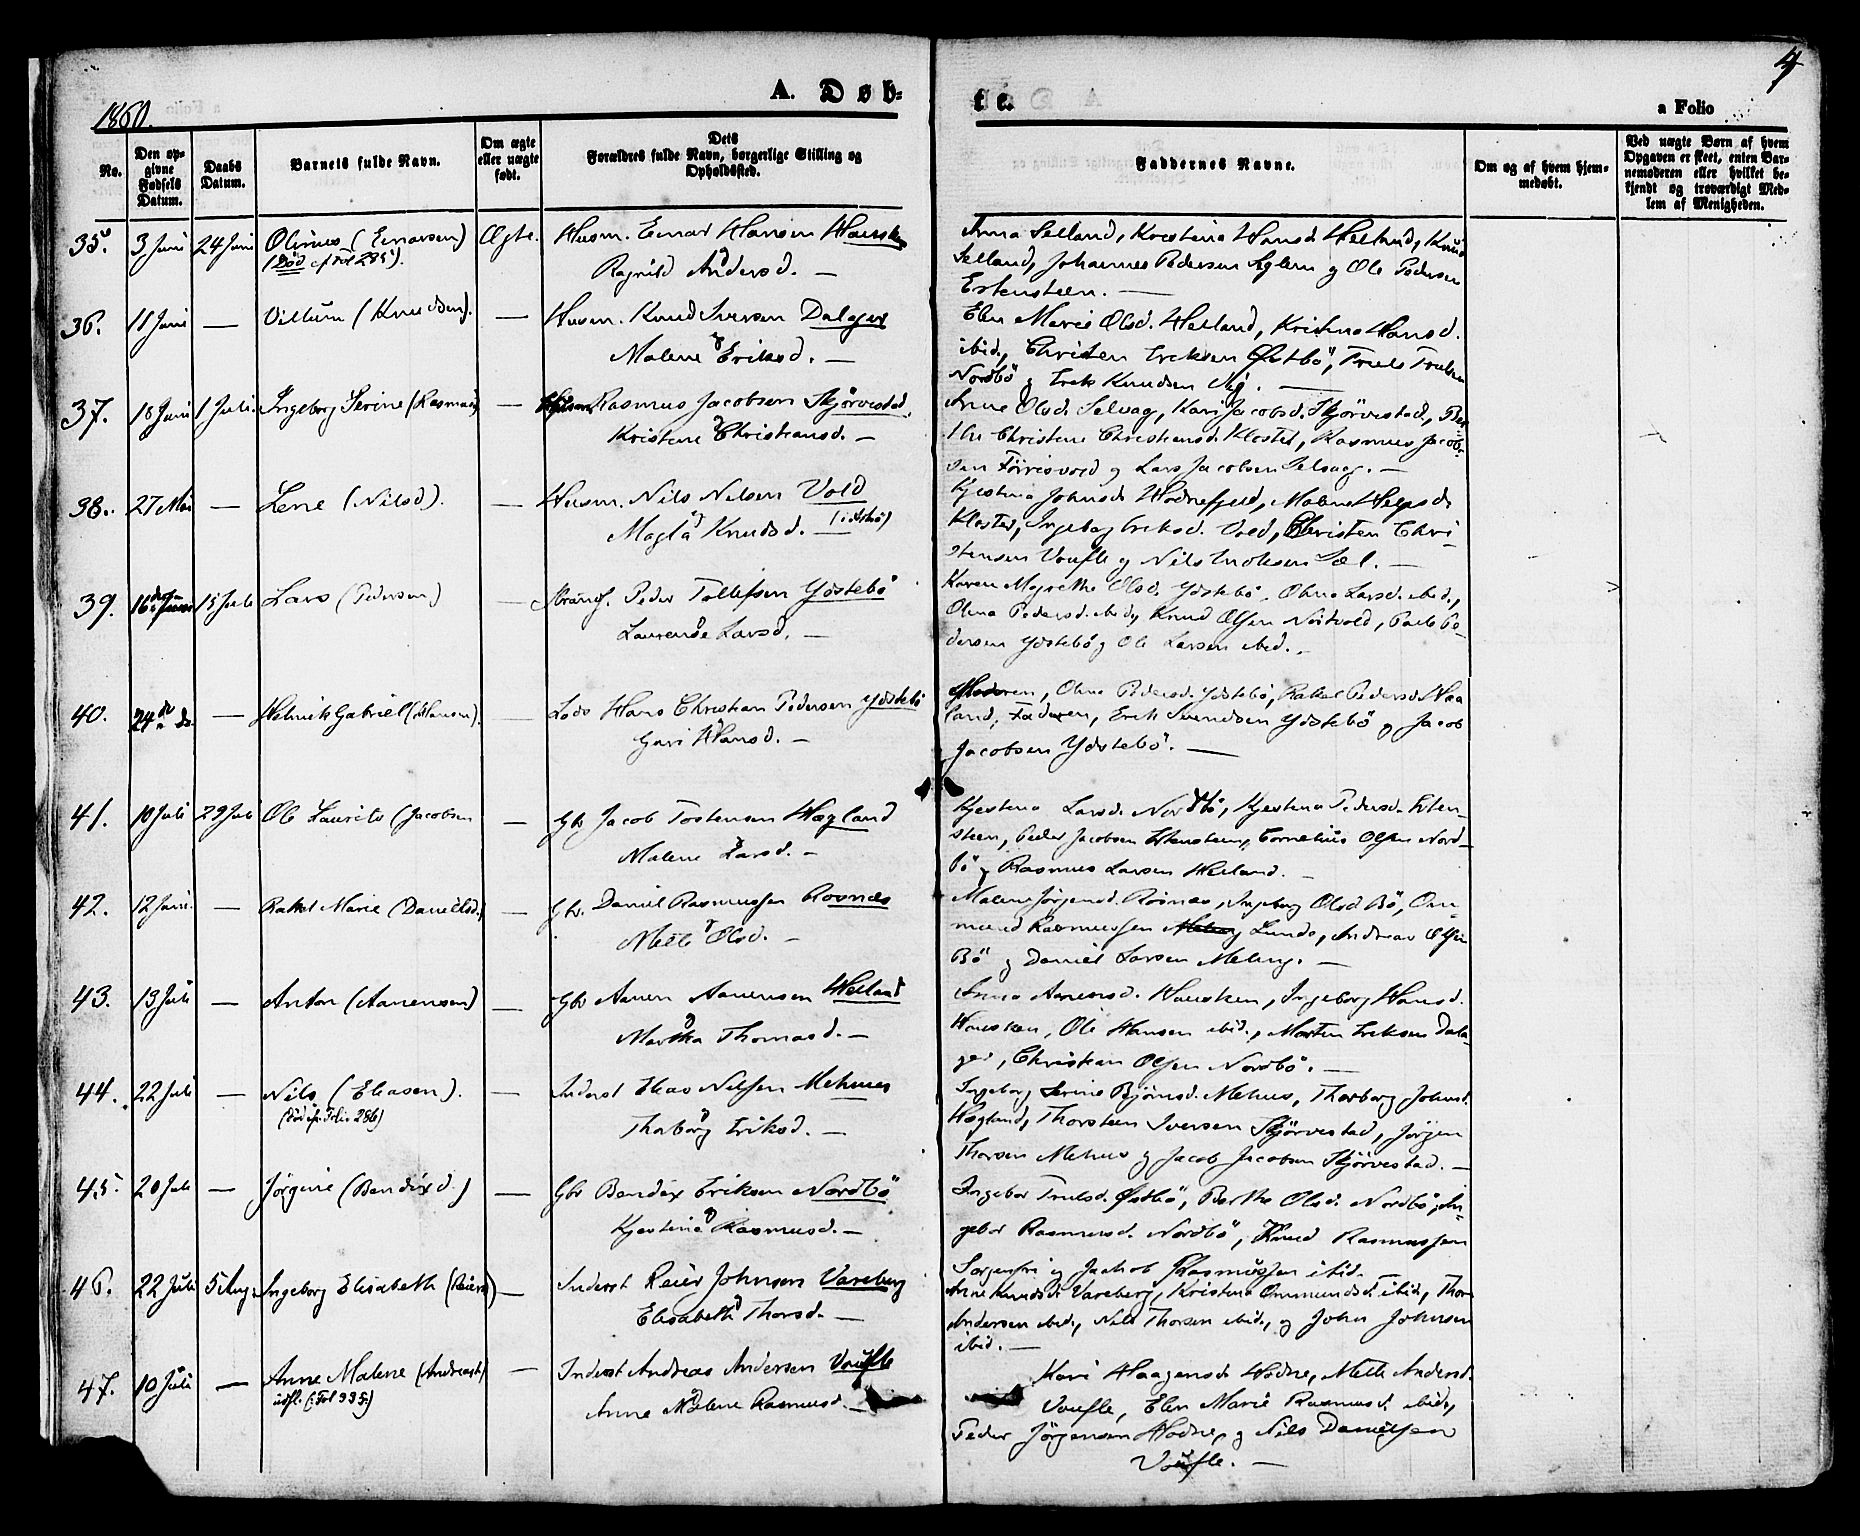 1860.
A. Døb-
te.
4
a Folio
No.
Den op-
givne
Fødsels
Datum.
Daabs
Datum.
Barnets fulde Navn.
Om ægte
eller uægte
født.
Dets
Forældres fulde Navn, borgerlige Stilling og
Opholdssted.
Faddernes Navne.
Om og af hvem hjem-
medøbt.
Ved uægte Børn af hvem
Opgaven er skeet, enten Bar-
nemoderen eller hvilket be-
kjendt og troværdigt Med-
lem af Menigheden.
35. 3 Juni 24 Juni Olinus (Einarsen) Ægte. Husm. Einar Hansen Hausken
(Død cf Fol 285).
Ragnild Andersd. —
Anna Selland, Kristina Hansd. Helland, Knud
Selland, Johannes Pedersen og Ole Pedersen
Estensteen. —
36. 11 Juni — Villum (Knudsen). — Husm. Knud Iversen Dalager
Malene Eriksd. —
Elen Marie Olsd. Helland, Kristine Hansd.
ibid., Christen Eriksen Østbö, Truls Trulsen
Nordbö og Erik Knudsen —
37. 18 Juni 1 Juli. Ingeborg Serine (Rasmusd) — Rasmus Jacobsen Skjörvestad,
Kristene Christensd. —
Anne Olsd. Selvag, Kari Jacobsd. Skjörvestad, Ber-
the Christine Christensd. Kloster, Rasmus Jacob-
sen Förrisvold og Lars Jacobsen Selvaag. —
38. 27 Mai — Lene (Nilsd). — Husm. Nils Nilsen Vold
Magla Knudsd. —
Kjestina Johnsd. Hodnefjeld, Malene
Kloster, Ingeborg Eriksd. Vold, Christen Chri-
stensen Voufle og Nils Sæl. —
39. 16 Juni 15 Juli Lars (Pedersen) — Peder Tollefsen Ydstebö
Laurense Larsd. —
Karen Magrethe Olsd. Ydstebö, Olene Larsd. ibid.,
Olena Pedersd. ibid., Knud Olsen Nordvold, Peder Pe-
dersen Ydstebö og Ole Larsen ibid. —
40. 24 do — Helmik Gabriel (Hansen). — Lods Hans Christian Pedersen Ydstebö
Guri Hansd. —
Moderen, Olena Pedersd. Ydstebö, Rakel Pedersd. Haa-
land, Faderen, Erik Svendsen Ydstebö og Jacob
Jacobsen Ydstebö. —
41. 10 Juli 29 Juli Ole Laurits (Jacobsen — Gbr Jacob Tostensen Hægland
Malene Larsd. —
Kjestina Larsd. Nordbö, Kjestina Pedersd. Esten-
steen, Peder Jacobsen Estensteen, Cornelius Olsen Nord-
bö og Rasmus Larsen Helland. —
42. 12 Juni. — Rakel Marie (Danielsd.) — Gbr. Daniel Rasmussen Rosnæs
Mette Olsd. —
Malene Jörgensd. Rosnæs, Ingeborg Olsd. Bö, Om-
mund Rasmussen Lunde, Andreas Olsen
Bö og Daniel Larsen Meling. —
43. 13 Juli — Anton (Aanensen) — Gbr Aanen Aanensen Helland
Martha Thomasd. —
Anna Aanensd. Hausken, Ingeborg Hansd.
Hausken, Ole Hansen ibid., Morten Eriksen Dala-
ger, Christian Olsen Nordbö. —
44. 22 Juli — Nils (Eliasen). — Inderst Elias Nilsen Mehus
(Död cfr Folio 286)
Thorborg Eriksd. —
Ingeborg Serine Björnsd. Mehus, Thorborg Johnsd.
Hægland, Thorsteen Iversen Skjörvestad, Jörgen
Thorsen Mehus og Jacob Jacobsen Skjörvestad. —
45. 20 Juli — Jörgine (Bendixd.) — Gbr Bendix Eriksen Nordbö
Kjestina Rasmusd. —
Ingebor Trulsd. Østbö, Berthe Olsd. Nordbö, In-
gebor Rasmusd. Nordbö, Knud Rasmussen
Sorgenfri og Jachob Rasmussen ibid.
46. 22 Juli 5 Aug. Ingeborg Elisabeth (Reiersd) — Inderst Reier Johnsen Vareberg
Elisabeth Thorsd. —
Anne Knudsd. Vareberg, Kristine Ommundsd. ibid., Thor
Andersen ibid., Nils Thorsen ibid., og John Johnsen
ibid. —
47. 10 Juli — Anne Malene (Andreasd) — Inderst Andreas Andersen Voufle
udfl. (Fol 335)
Anne Malene Rasmusd. —
Kari Haagensd. Hodne, Mette Andersd.
Voufle, Elen Marie Rasmusd. ibid.,
Peder Jörgensen Hodne, og Nils Danielsen
Voufle. —